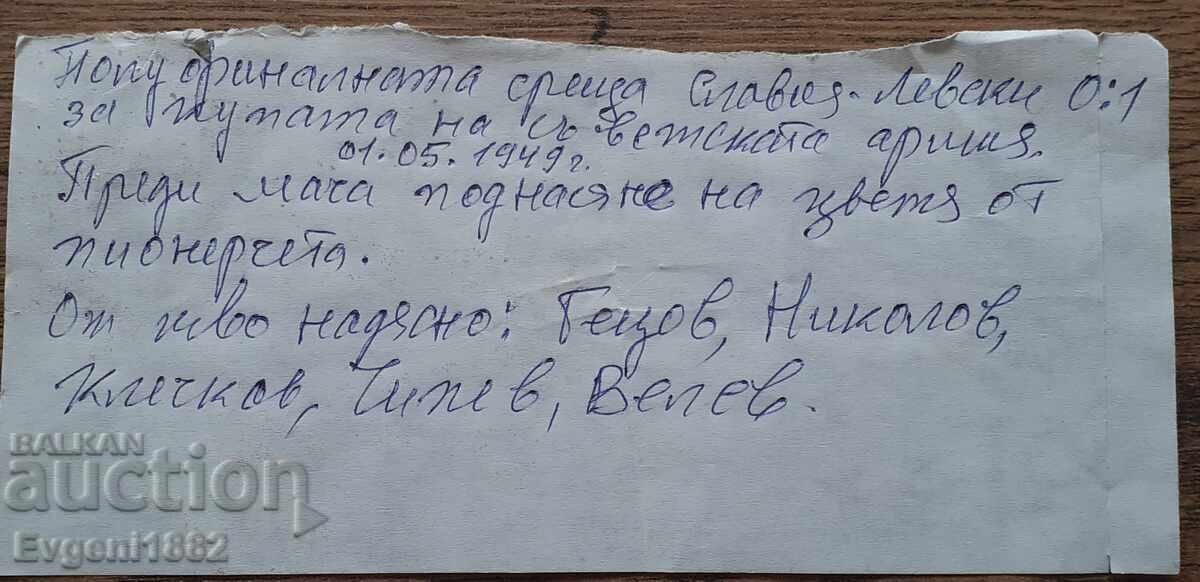 Полуфиналната среща Славия-Левски 0:1
за купата на съветската армия.
01.05.1949г.
Преди мача поднасяне на цветя от
пионерчета.
От ляво надясно: Гецов, Николов,
Клечков, Чипев, Велев.
BALKAN
auction
Evgeni1882